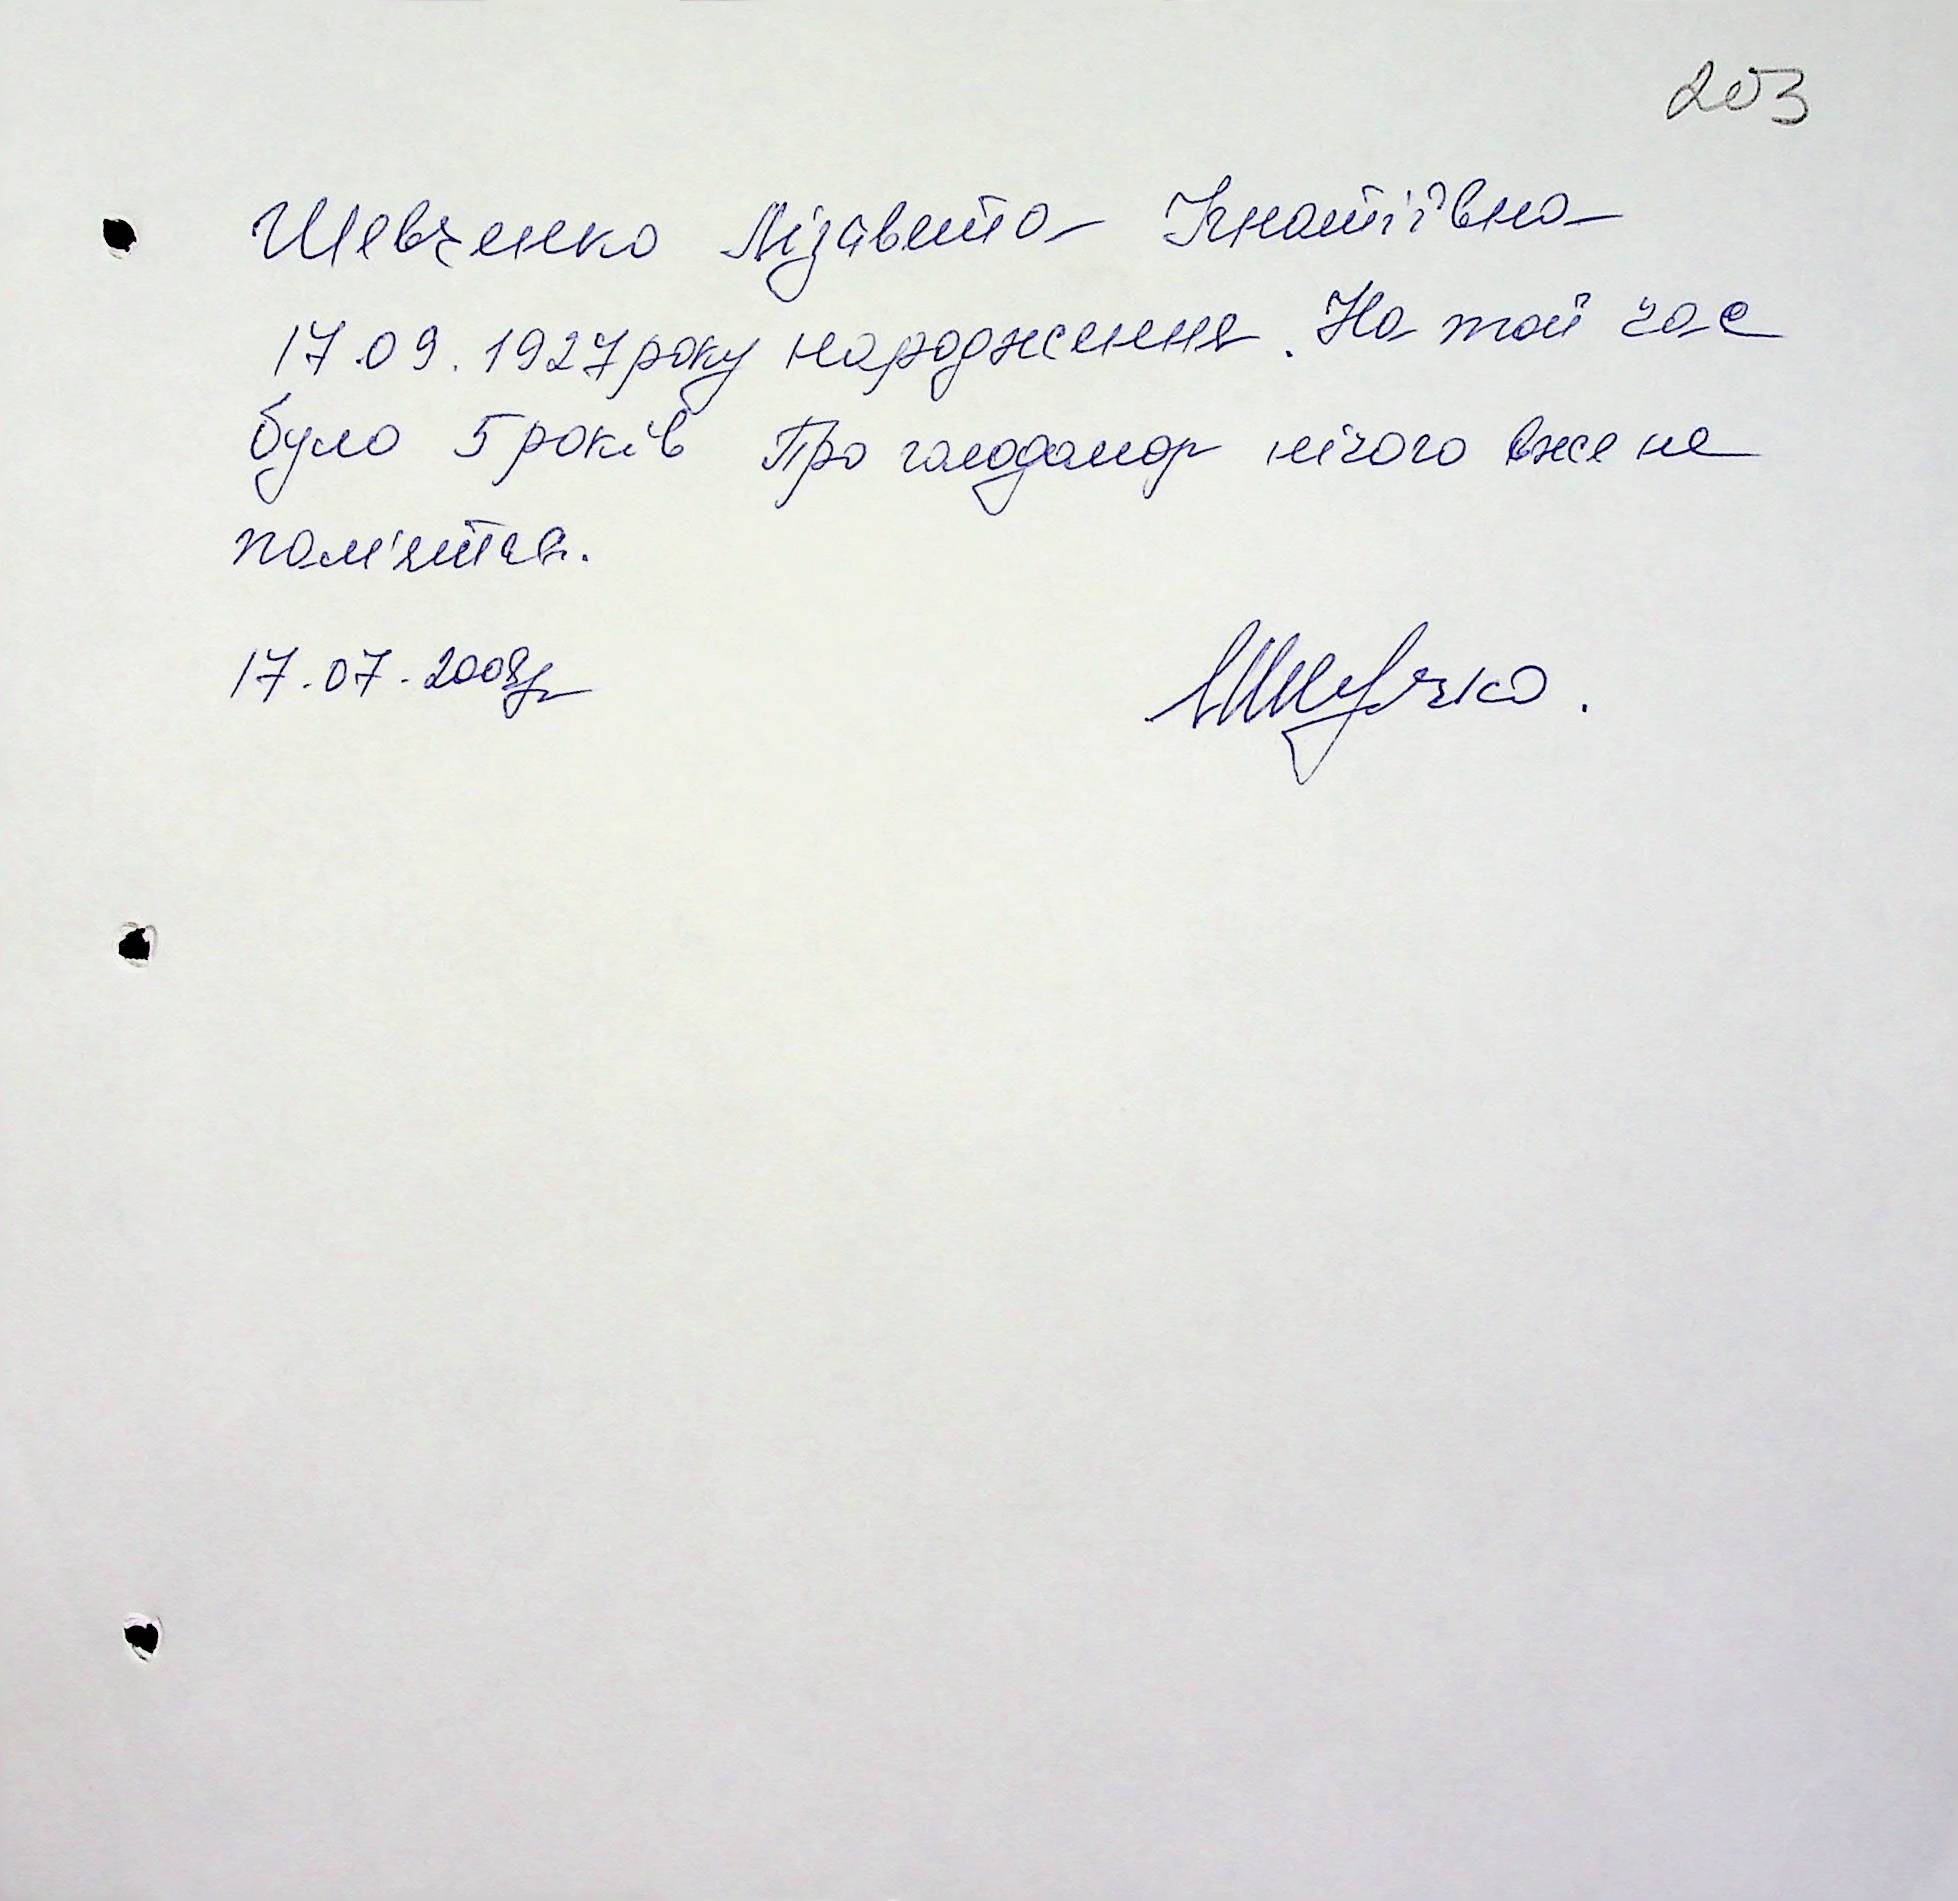 203
Шевченко Лізавета Ігнатіївна
17.09.1927 року народження. На той час
було 5 років Про голодомор нічого вже не
пам'ятає.
17.07.2008р